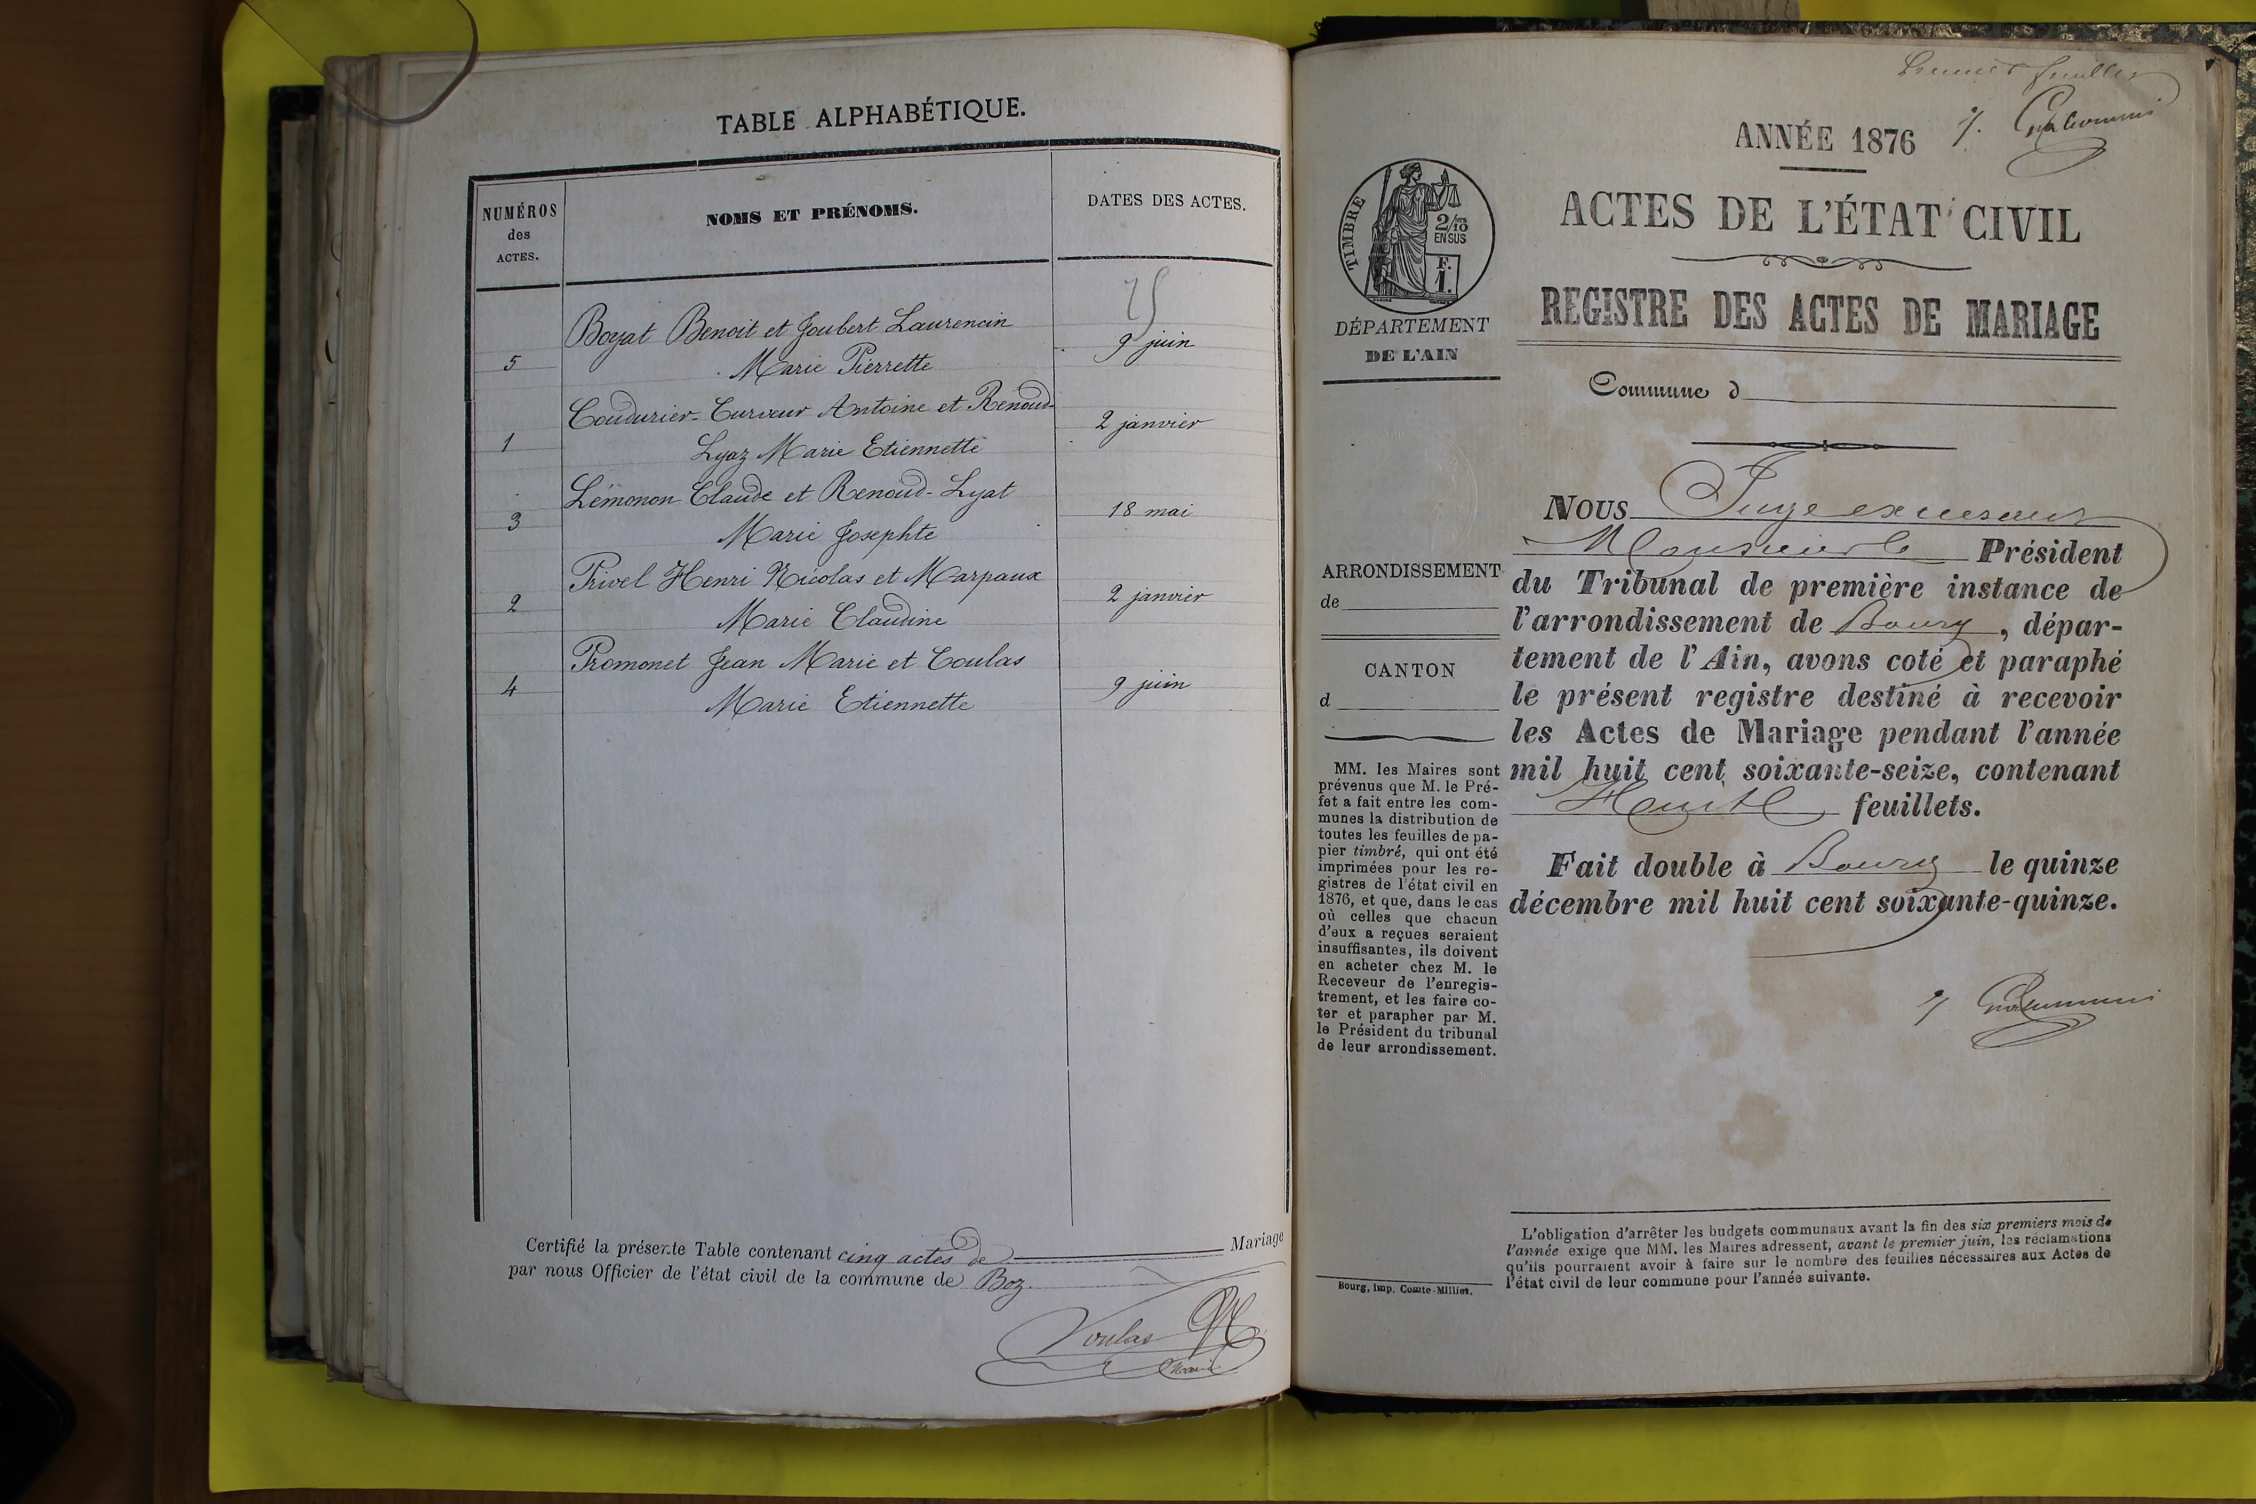 TABLE ALPHABÉTIQUE.
NUMÉROS
des
ACTES.
NOMS ET PRÉNOMS.
DATES DES ACTES.
75
Boyat Benoit et Joubert Laurencin
5 Marie Pierrette 9 juin
Coudurier-Curveur Antoine et Renoud-
1 Lyaz Marie Etiennette 2 janvier
Lémonon Claude et Renoud-Lyat
3 Marie Josephte 18 mai
Privel Henri Nicolas et Marpaux
2 Marie Claudine 2 janvier
Promonet Jean Marie et Coulas
4 Marie Etiennette 9 juin
Certifié la présente Table contenant cinq actes de Mariage
par nous Officier de l'état civil de la commune de Boz.
Coulas
Maire
Premier feuillet
ANNÉE 1876
ACTES DE L'ÉTAT CIVIL
REGISTRE DES ACTES DE MARIAGE
TIMBRE
2/10
EN SUS
F.
1.
DÉPARTEMENT
DE L'AIN
Commune d
ARRONDISSEMENT
de
CANTON
d
MM. les Maires sont
prévenus que M. le Pré-
fet a fait entre les com-
munes la distribution de
toutes les feuilles de pa-
pier timbré, qui ont été
imprimées pour les re-
gistres de l'état civil en
1876, et que, dans le cas
où celles que chacun
d'eux a reçues seraient
insuffisantes, ils doivent
en acheter chez M. le
Receveur de l'enregis-
trement, et les faire co-
ter et parapher par M.
le Président du tribunal
de leur arrondissement.
Bourg, imp. Comte-Milliet.
NOUS Juge
Monsieur le Président
du Tribunal de première instance de
l'arrondissement de Bourg, dépar-
tement de l'Ain, avons coté et paraphé
le présent registre destiné à recevoir
les Actes de Mariage pendant l'année
mil huit cent soixante-seize, contenant
Huit feuillets.
Fait double à Bourg le quinze
décembre mil huit cent soixante-quinze.
L'obligation d'arrêter les budgets communaux avant la fin des six premiers mois de
l'année exige que MM. les Maires adressent, avant le premier juin, les réclamations
qu'ils pourraient avoir à faire sur le nombre des feuilles nécessaires aux Actes de
l'état civil de leur commune pour l'année suivante.